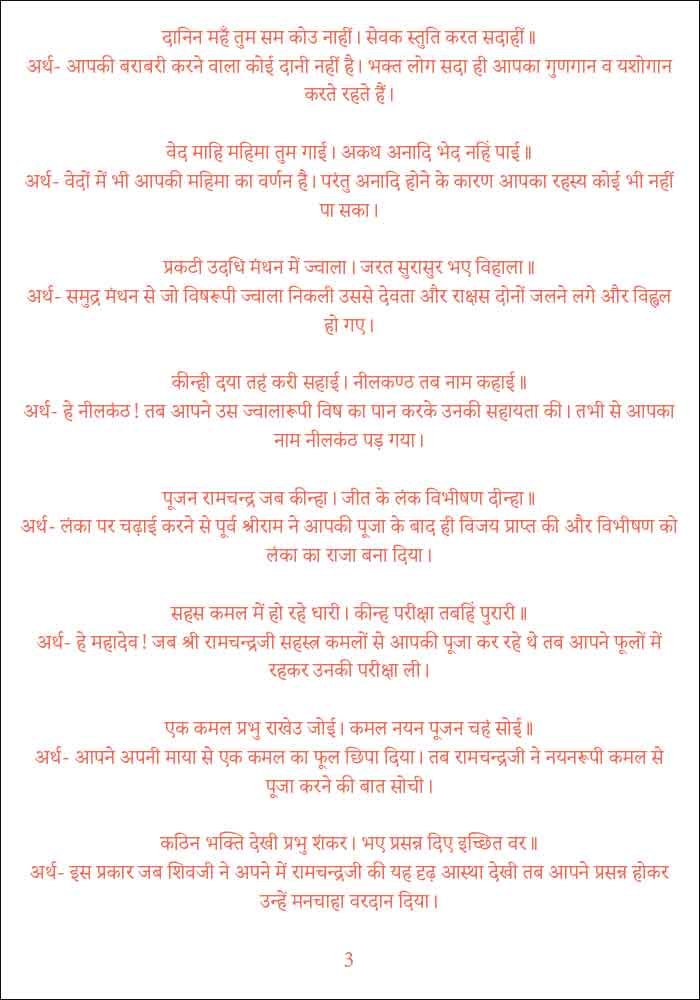 दानिन महँ तुम सम कोउ नाहीं। सेवक स्तुति करत सदाहीं॥
अर्थ- आपकी बराबरी करने वाला कोई दानी नहीं है। भक्त लोग सदा ही आपका गुणगान व यशोगान
करते रहते हैं।
वेद माहि महिमा तुम गाई। अकथ अनादि भेद नहिं पाई॥
अर्थ- वेदों में भी आपकी महिमा का वर्णन है। परंतु अनादि होने के कारण आपका रहस्य कोई भी नहीं
पा सका।
प्रकटी उदधि मंथन में ज्वाला। जरत सुरासुर भए विहाला॥
अर्थ- समुद्र मंथन से जो विषरूपी ज्वाला निकली उससे देवता और राक्षस दोनों जलने लगे और विह्वल
हो गए।
कीन्ही दया तहं करी सहाई। नीलकण्ठ तब नाम कहाई॥
अर्थ- हे नीलकंठ! तब आपने उस ज्वालारूपी विष का पान करके उनकी सहायता की। तभी से आपका
नाम नीलकंठ पड़ गया।
पूजन रामचन्द्र जब कीन्हा। जीत के लंक विभीषण दीन्हा॥
अर्थ- लंका पर चढ़ाई करने से पूर्व श्रीराम ने आपकी पूजा के बाद ही विजय प्राप्त की और विभीषण को
लंका का राजा बना दिया।
सहस कमल में हो रहे धारी। कीन्ह परीक्षा तबहिं पुरारी॥
अर्थ- हे महादेव! जब श्री रामचन्द्रजी सहस्त्र कमलों से आपकी पूजा कर रहे थे तब आपने फूलों में
रहकर उनकी परीक्षा ली।
एक कमल प्रभु राखेउ जोई। कमल नयन पूजन चहं सोई॥
अर्थ- आपने अपनी माया से एक कमल का फूल छिपा दिया। तब रामचन्द्रजी ने नयनरूपी कमल से
पूजा करने की बात सोची।
कठिन भक्ति देखी प्रभु शंकर। भए प्रसन्न दिए इच्छित वर॥
अर्थ- इस प्रकार जब शिवजी ने अपने में रामचन्द्रजी की यह दृढ़ आस्था देखी तब आपने प्रसन्न होकर
उन्हें मनचाहा वरदान दिया।
3